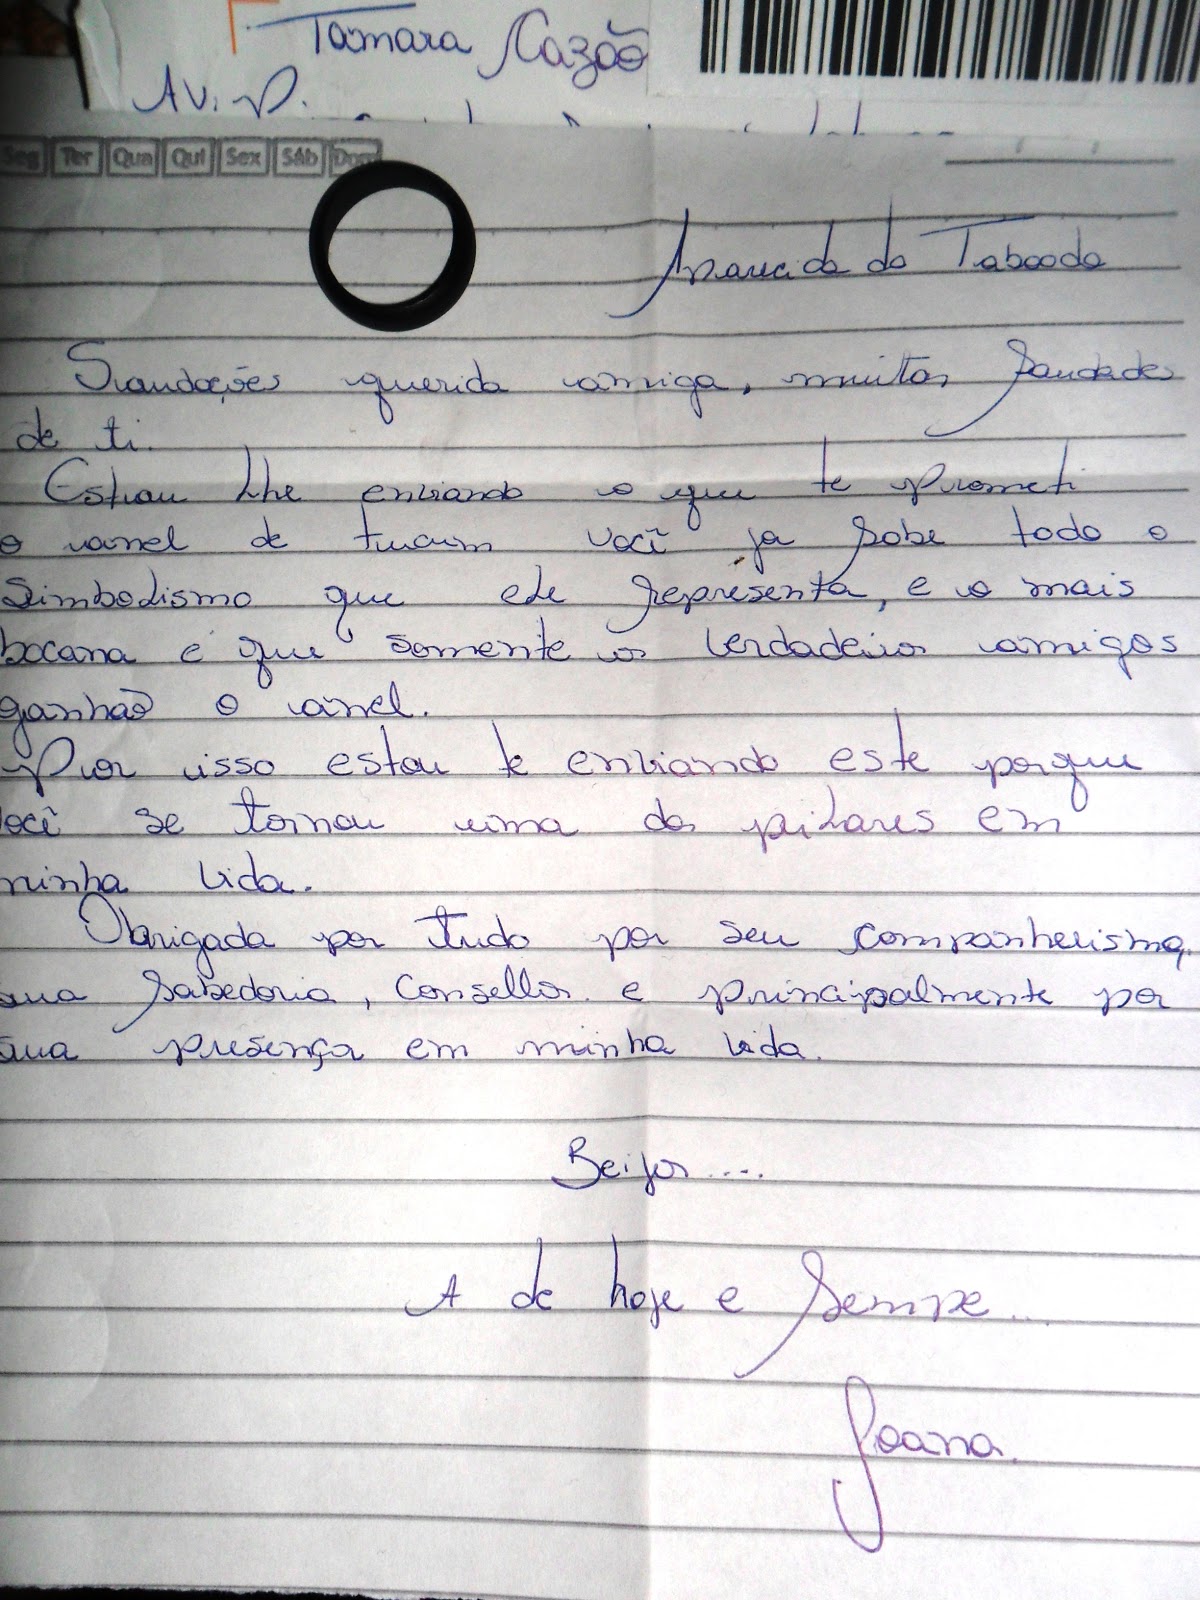 Tamara Cazão
Av. D.
Seg Ter Qua Qui Sex Sáb Dom
Aparecida do Taboado
Saudações querida amiga, muitas saudades
de ti.
Estou lhe enviando o que te prometi
o anel de tucum você ja sabe todo o
simbolismo que ele representa, e o mais
bacana e que somente os verdadeiros amigos
ganhão o anel.
Por isso estou te enviando este porque
você se tornou uma dos pilares em
minha vida.
Obrigada por tudo por seu companherismo,
sua sabedoria, consellos e principalmente por
sua presença em minha vida.
Beijos....
A de hoje e sempre...
Joana.